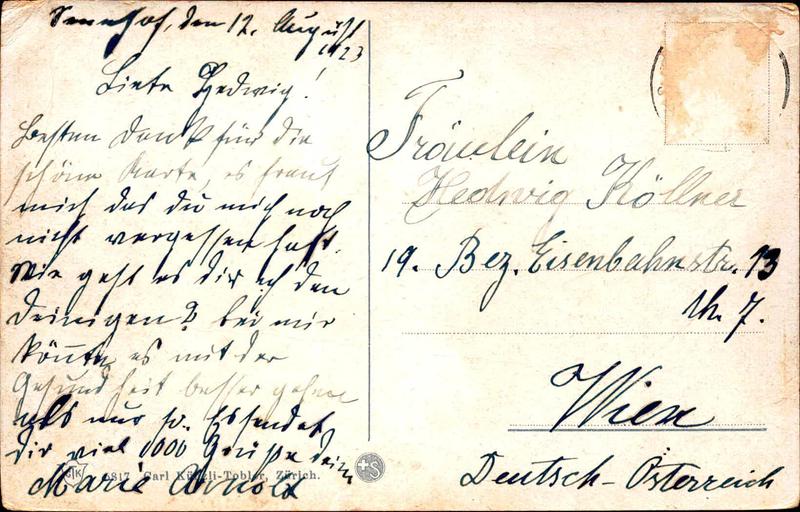 Sennhof, den 12. August
1923
Liebe Hedwig!
Besten Dank für die
schöne Karte, es freut
mich das du mich noch
nicht vergessen hast.
Wie geht es dir u. den
deinigen? bei mir
könnte es mit der
Gesundheit besser gehen
als nur so. Es sendet
dir viel 1000 Grüße deine
Marie Arnold
9817 Carl Künzli-Tobler, Zürich.
Fräulein
Hedwig Köllner
19. Bez. Eisenbahnstr. 13
Th. 7.
Wien
Deutsch-Österreich